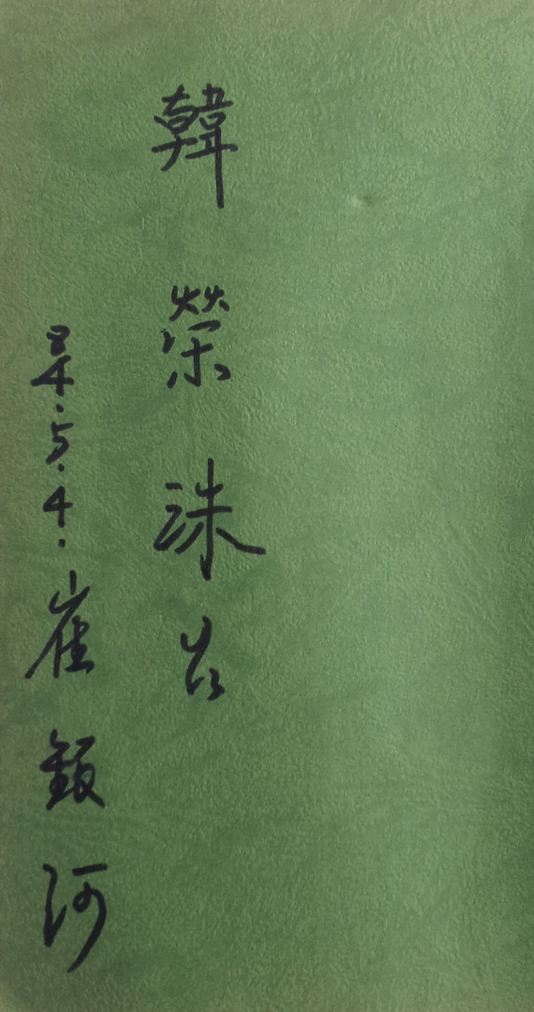 韓榮洙 님
84.5.4. 崔銀河